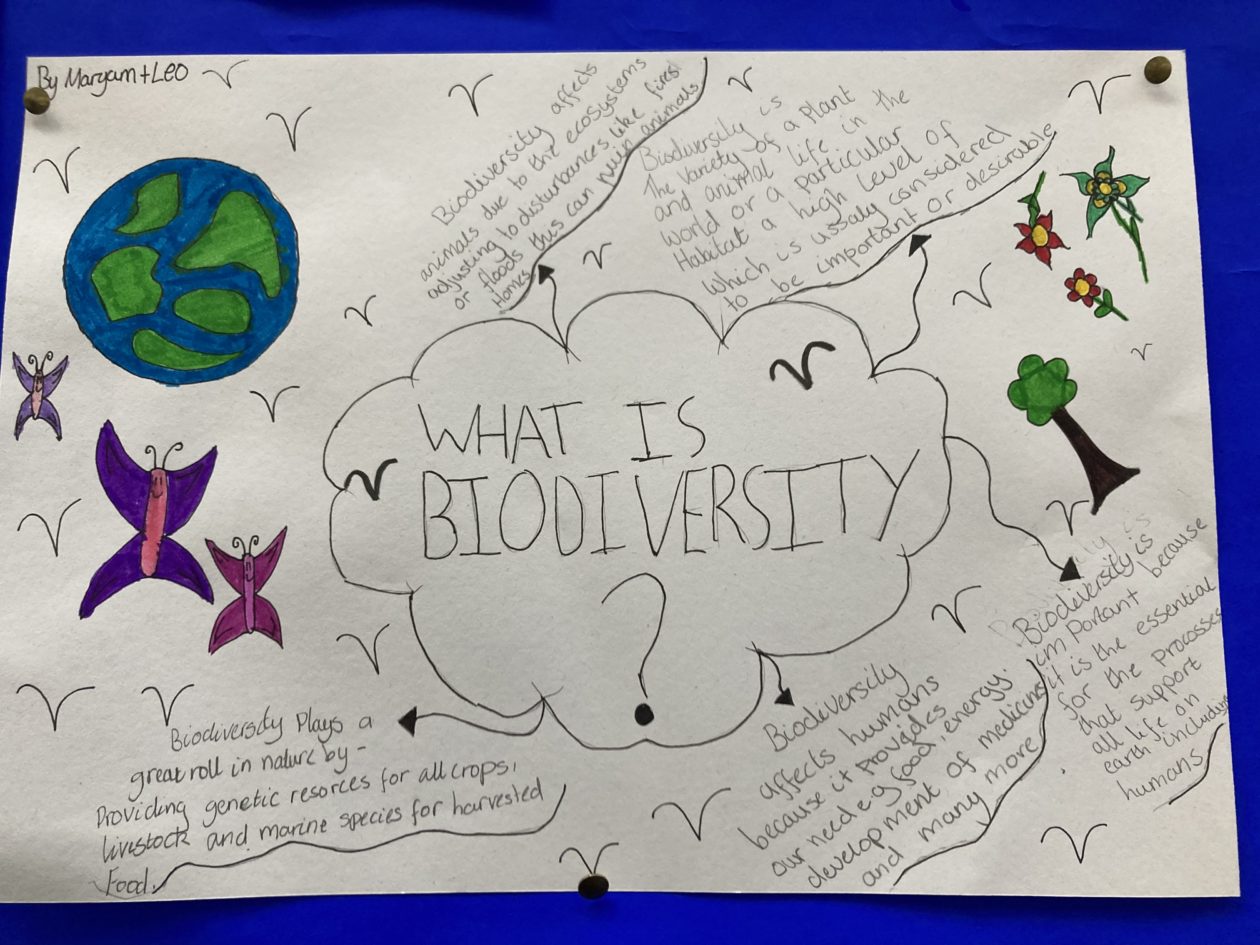 By Maryam + Leo
Biodiversity affects
animals due to the ecosystems
adjusting to disturbances like fires
or floods this can ruin animals
Homes.
Biodiversity is
The variety of a Plant
and animal life in the
world or a particular
Habitat a high level of
Which is usaly considered
to be important or desirable
WHAT IS
BIODIVERSITY
?
Biodiversity is
important because
it is the essential
for the processes
that support
all life on
earth including
humans
Biodiversity
affects humans
because it provides
our need e.g food, energy,
development of medicine
and many more
Biodiversity Plays a
great roll in nature by-
Providing genetic resorces for all crops,
livestock and marine species for harvested
Food.